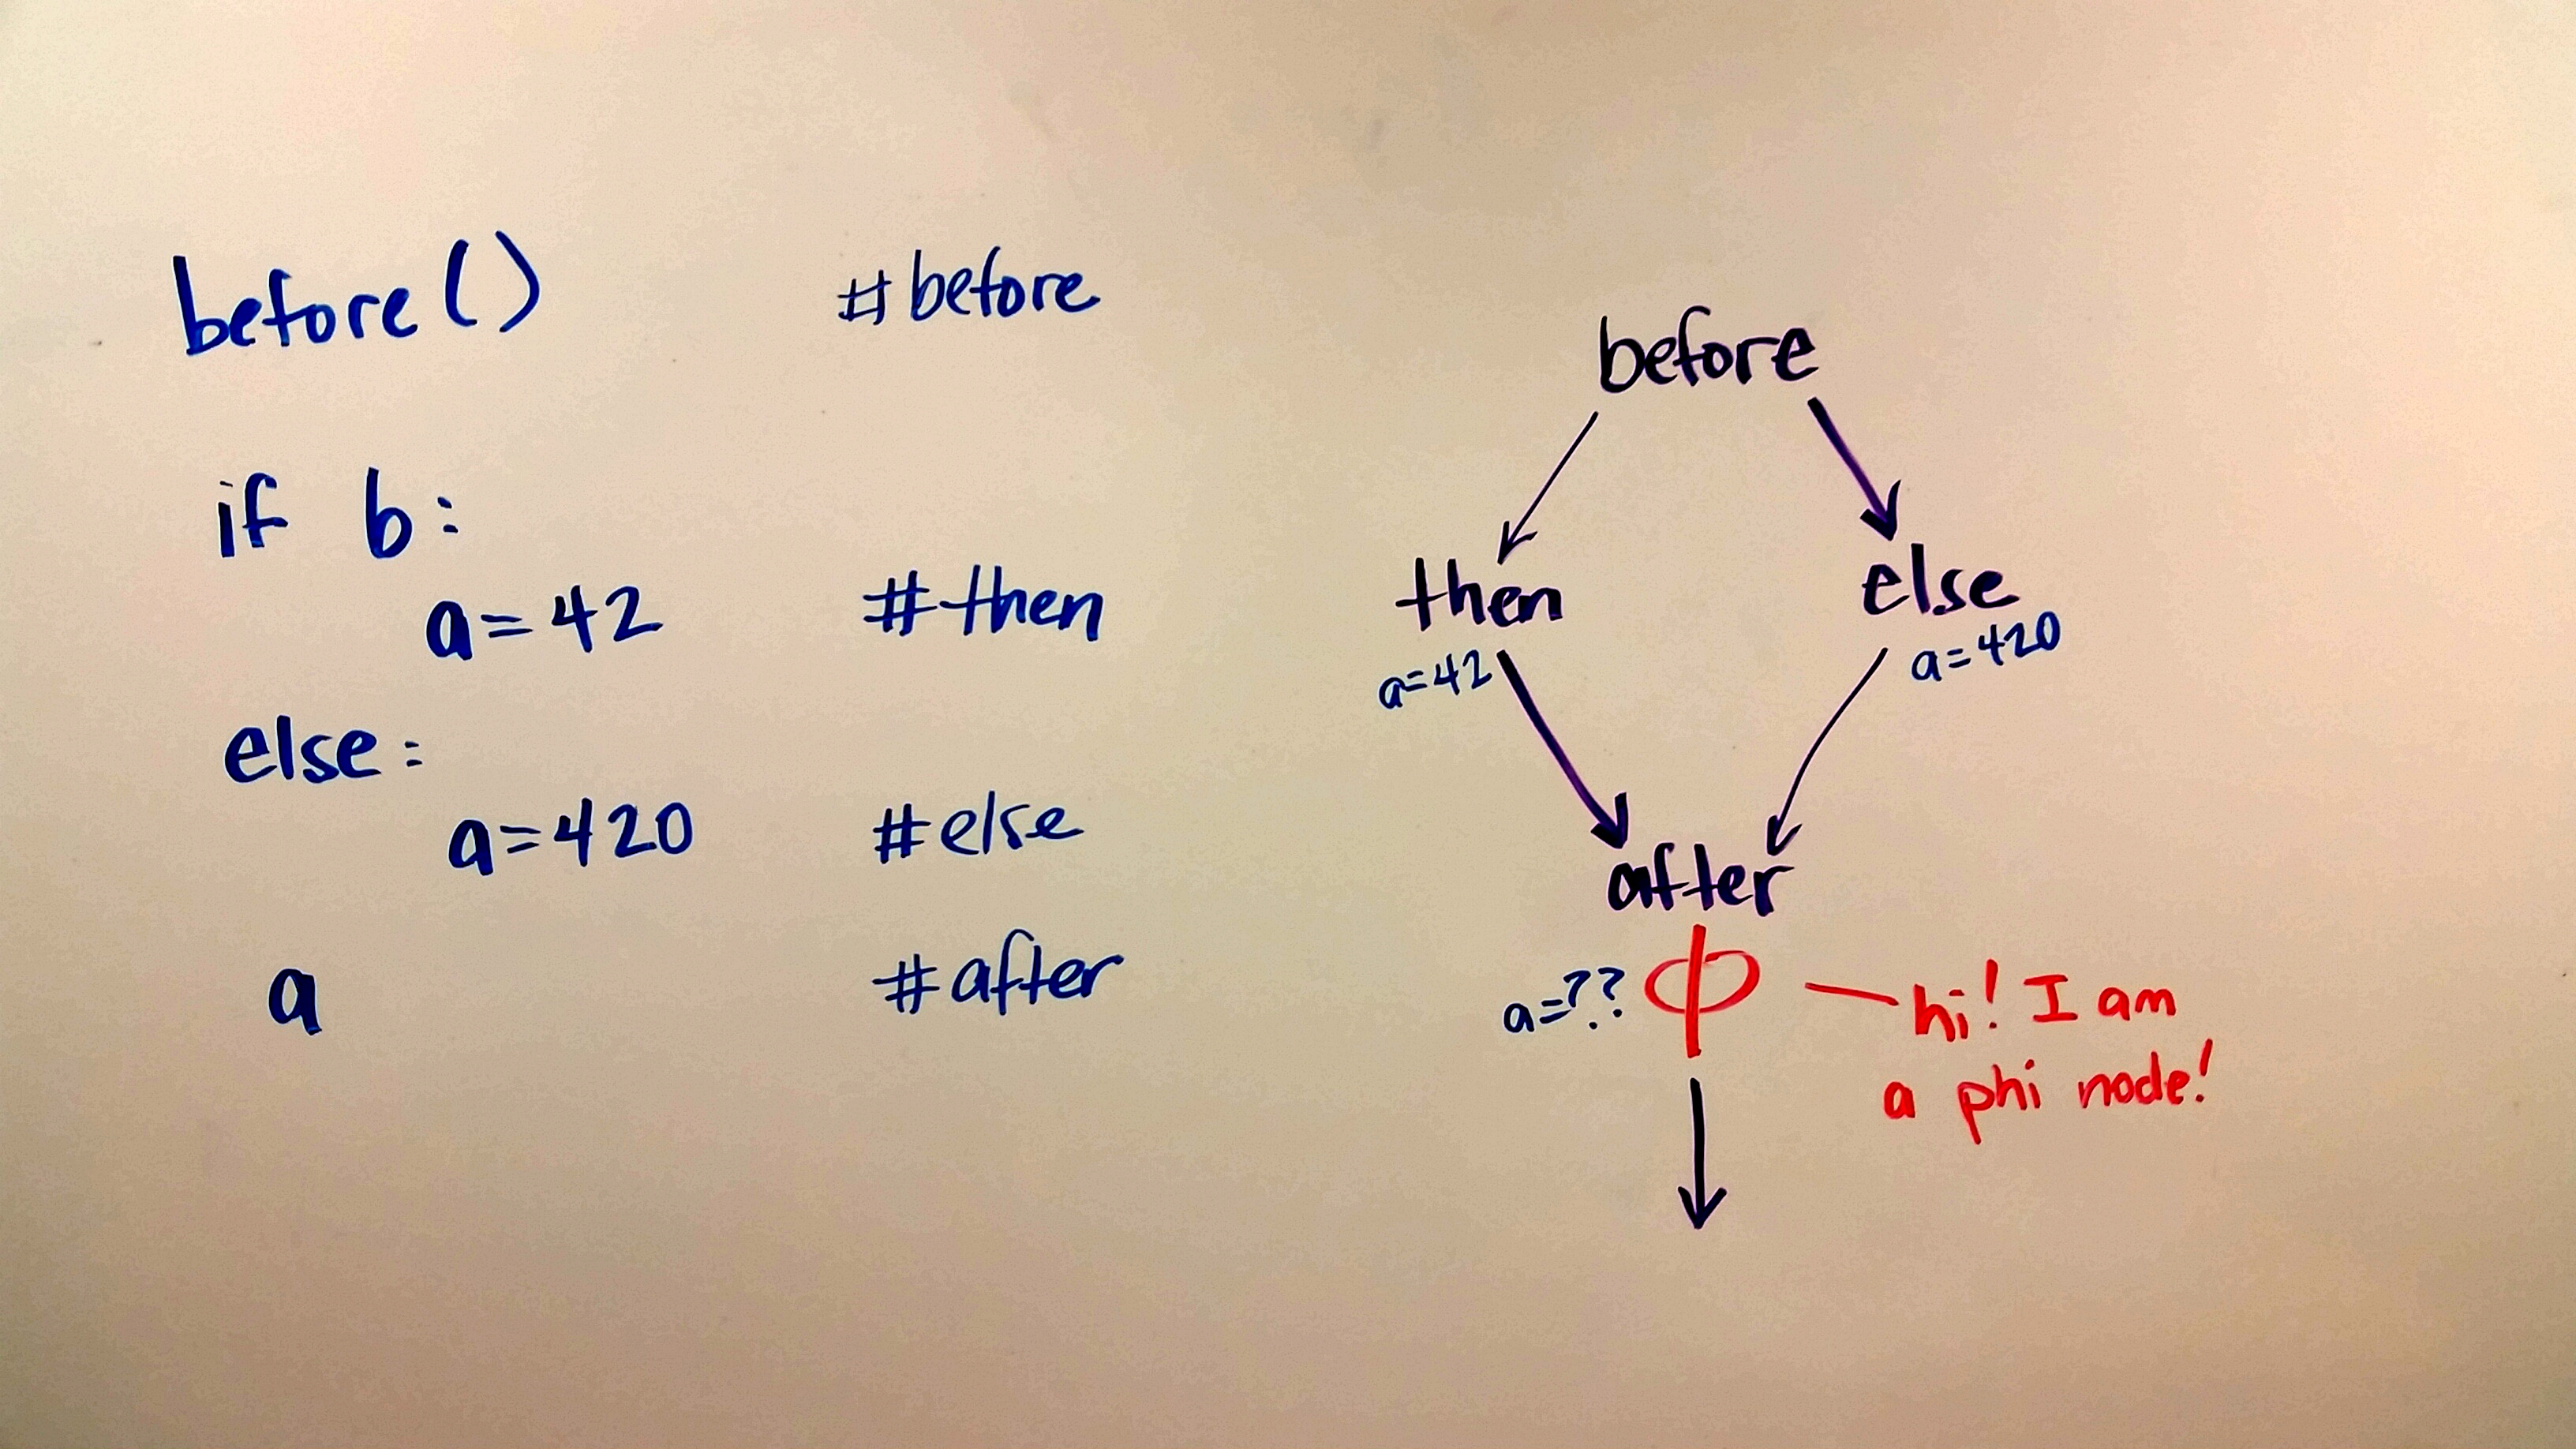 before() #before
if b:
a=42 #then
else:
a=420 #else
a #after
before
then else
a=42 a=420
after
a=?? Φ hi! I am
a phi node!